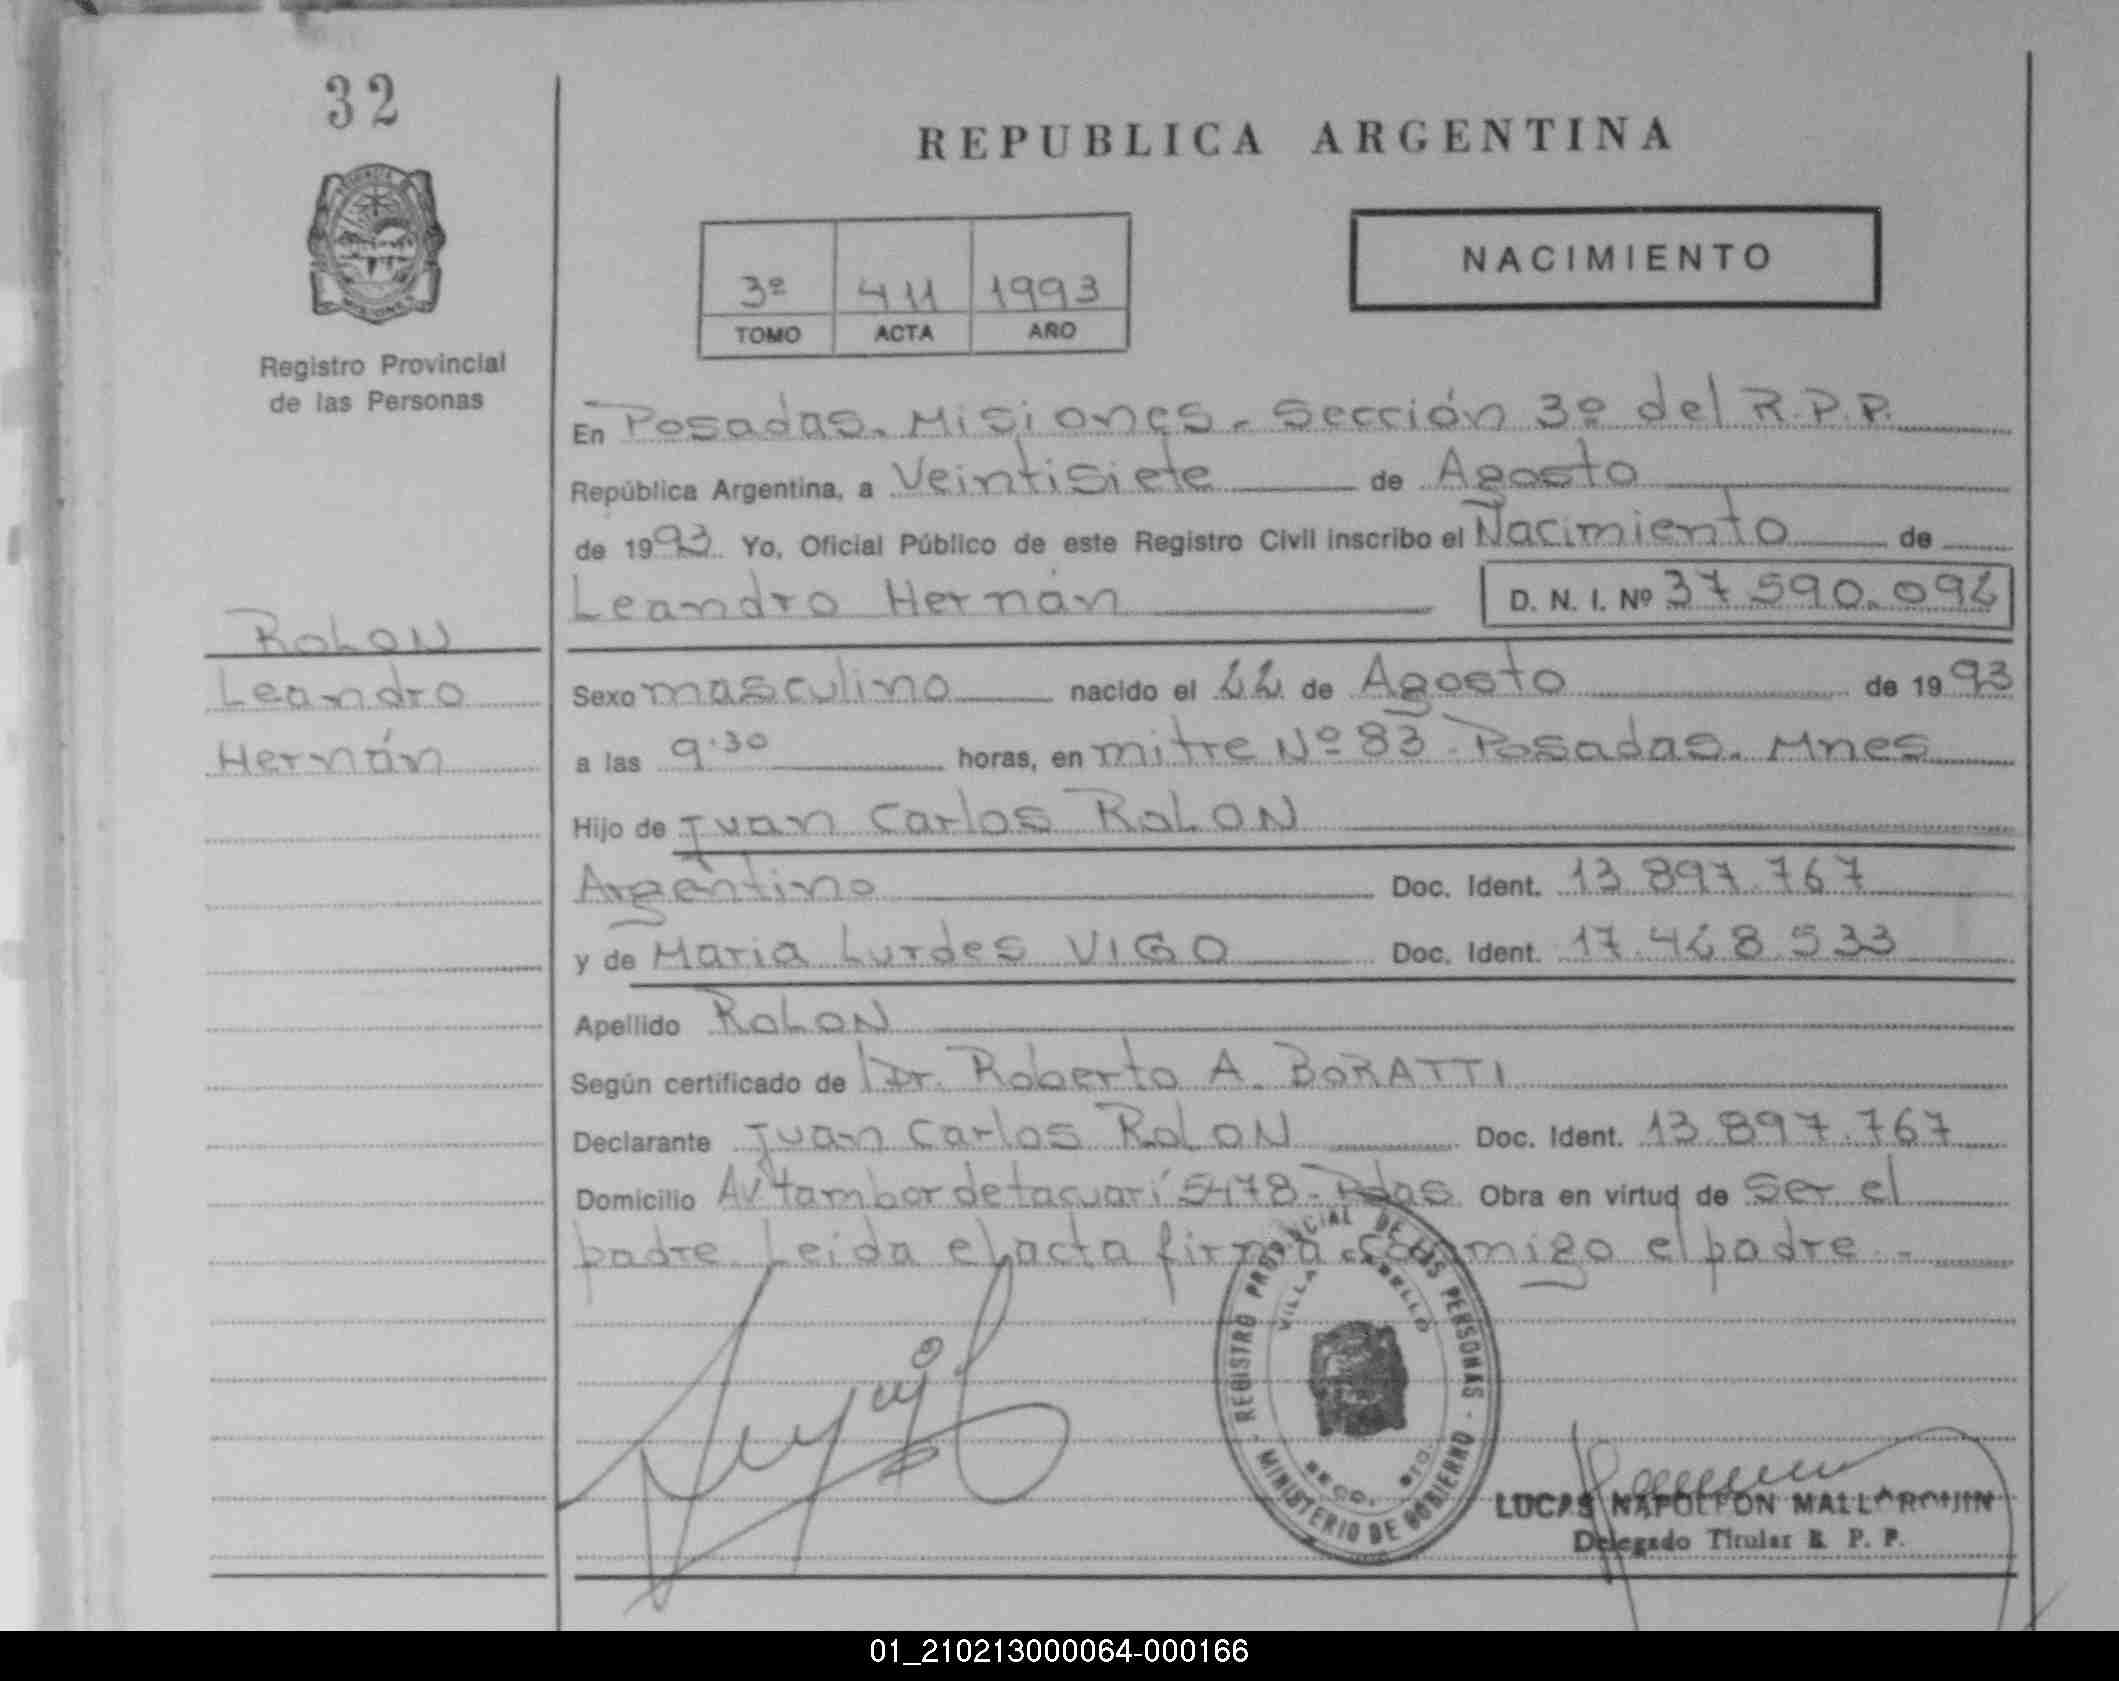 32
REPUBLICA ARGENTINA
NACIMIENTO
3º 411 1993
TOMO ACTA AÑO
Registro Provincial
de las Personas
En Posadas. Misiones. Sección 3º del R.P.P.
República Argentina, a Veintisiete de Agosto
de 1993 Yo, Oficial Público de este Registro Civil inscribo el Nacimiento de
Leandro Hernán D. N. I. Nº 37 590.092
ROLON
Leandro
Hernán
Sexo masculino nacido el 22 de Agosto de 1993
a las 9.30 horas, en mitre Nº 83 - Posadas. Mnes
Hijo de Juan Carlos ROLON
Argentino Doc. Ident. 13 897 767
y de Maria Lurdes VIGO Doc. Ident. 17.428.533
Apellido ROLON
Según certificado de Dr. Roberto A. BORATTI
Declarante Juan Carlos ROLON Doc. Ident. 13 897.767
Domicilio Av tambor de tacuarí 5478 - Pdas Obra en virtud de Ser el
padre. Leida el acta firma conmigo el padre. -
REGISTRO PROVINCIAL DE LAS PERSONAS - MINISTERIO DE GOBIERNO -
VILLA CABELLO
LUCAS NAPOLEON MALLORQUIN
Delegado Titular R. P. P.
01_210213000064-000166